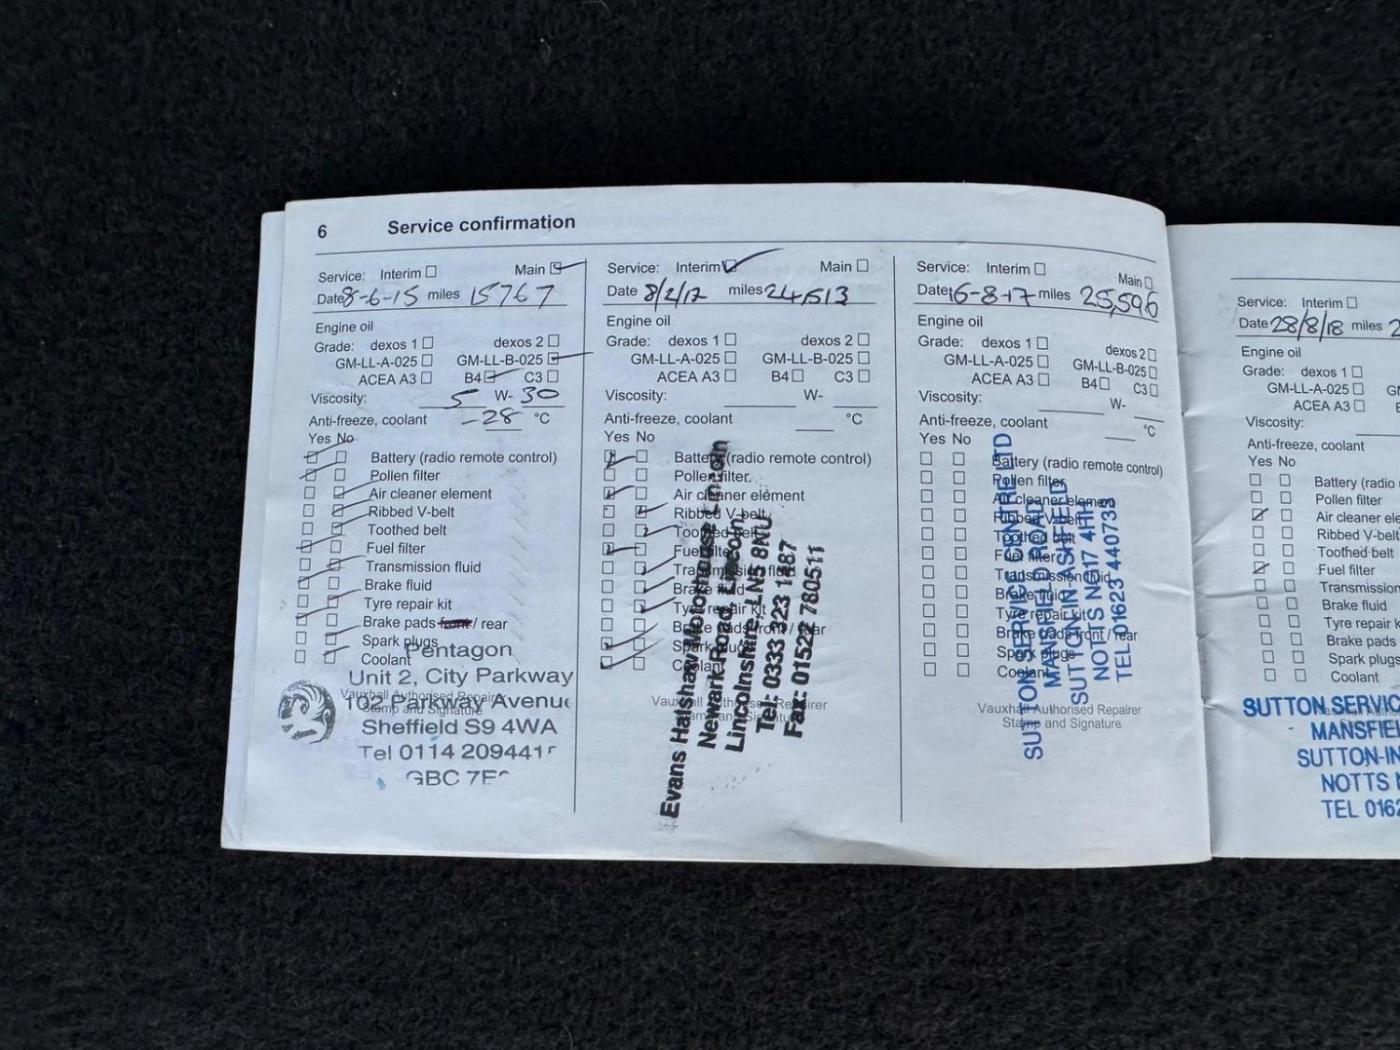 6 Service confirmation
Service: Interim Main
Date 8-6-15 miles 15767
Engine oil
Grade: dexos 1 dexos 2
GM-LL-A-025 GM-LL-B-025
ACEA A3 B4 C3
Viscosity: 5 W- 30
Anti-freeze, coolant -28 °C
Yes No
Battery (radio remote control)
Pollen filter
Air cleaner element
Ribbed V-belt
Toothed belt
Fuel filter
Transmission fluid
Brake fluid
Tyre repair kit
Brake pads front / rear
Spark plugs
Coolant
Pentagon
Unit 2, City Parkway
Vauxhall Authorised Repairer
102 Parkway Avenue
Stamp and Signature
Sheffield S9 4WA
Tel 0114 209441
GBC 7E
Service: Interim Main
Date 8/2/17 miles 24,513
Engine oil
Grade: dexos 1 dexos 2
GM-LL-A-025 GM-LL-B-025
ACEA A3 B4 C3
Viscosity: W-
Anti-freeze, coolant °C
Yes No
Battery (radio remote control)
Pollen filter
Air cleaner element
Ribbed V-belt
Toothed belt
Fuel filter
Transmission fluid
Brake fluid
Tyre repair kit
Brake pads front / rear
Spark plugs
Coolant
Vauxhall Authorised Repairer
Stamp and Signature
Evans Halshaw Motorhouse Lincoln
Newark Road, Lincoln,
Lincolnshire, LN5 8NU
Tel: 0333 323 1487
Fax: 01522 780511
Service: Interim Main
Date 16-8-17 miles 25,596
Engine oil
Grade: dexos 1 dexos 2
GM-LL-A-025 GM-LL-B-025
ACEA A3 B4 C3
Viscosity: W-
Anti-freeze, coolant °C
Yes No
Battery (radio remote control)
Pollen filter
Air cleaner element
Ribbed V-belt
Toothed belt
Fuel filter
Transmission fluid
Brake fluid
Tyre repair kit
Brake pads front / rear
Spark plugs
Coolant
Vauxhall Authorised Repairer
Stamp and Signature
SUTTON SERVICE CENTRE LTD
MANSFIELD ROAD
SUTTON-IN-ASHFIELD
NOTTS NG17 4HH
TEL 01623 440738
Service: Interim
Date 28/8/18 miles 2
Engine oil
Grade: dexos 1
GM-LL-A-025 G
ACEA A3
Viscosity:
Anti-freeze, coolant
Yes No
Battery (radio
Pollen filter
Air cleaner ele
Ribbed V-belt
Toothed belt
Fuel filter
Transmission
Brake fluid
Tyre repair k
Brake pads
Spark plugs
Coolant
SUTTON SERVIC
MANSFIE
SUTTON-IN
NOTTS N
TEL 0162